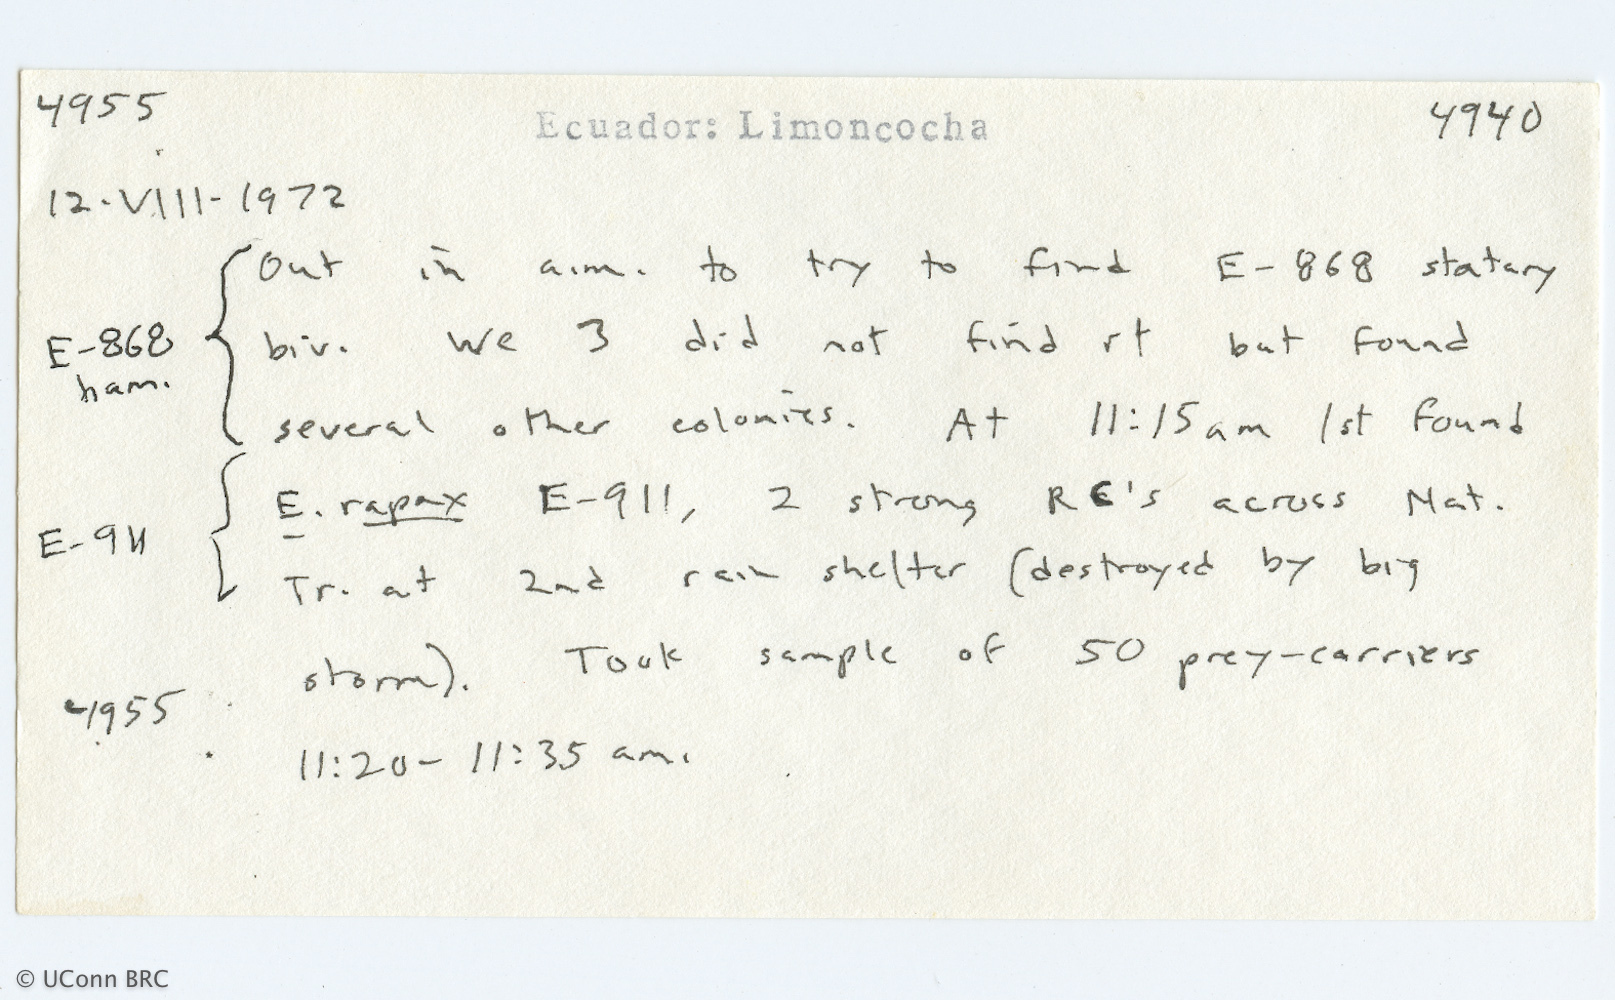 4955 Ecuador: Limoncocha 4940
12·VIII-1972
Out in a.m. to try to find E-868 statary
E-868 biv. We 3 did not find it but found
ham.
several other colonies. At 11:15 am 1st found
E. rapax E-911, 2 strong RC's across Nat.
E-911
Tr. at 2nd rain shelter (destroyed by big
storm). Took sample of 50 prey-carriers
4955
11:20- 11:35 am.
© UConn BRC